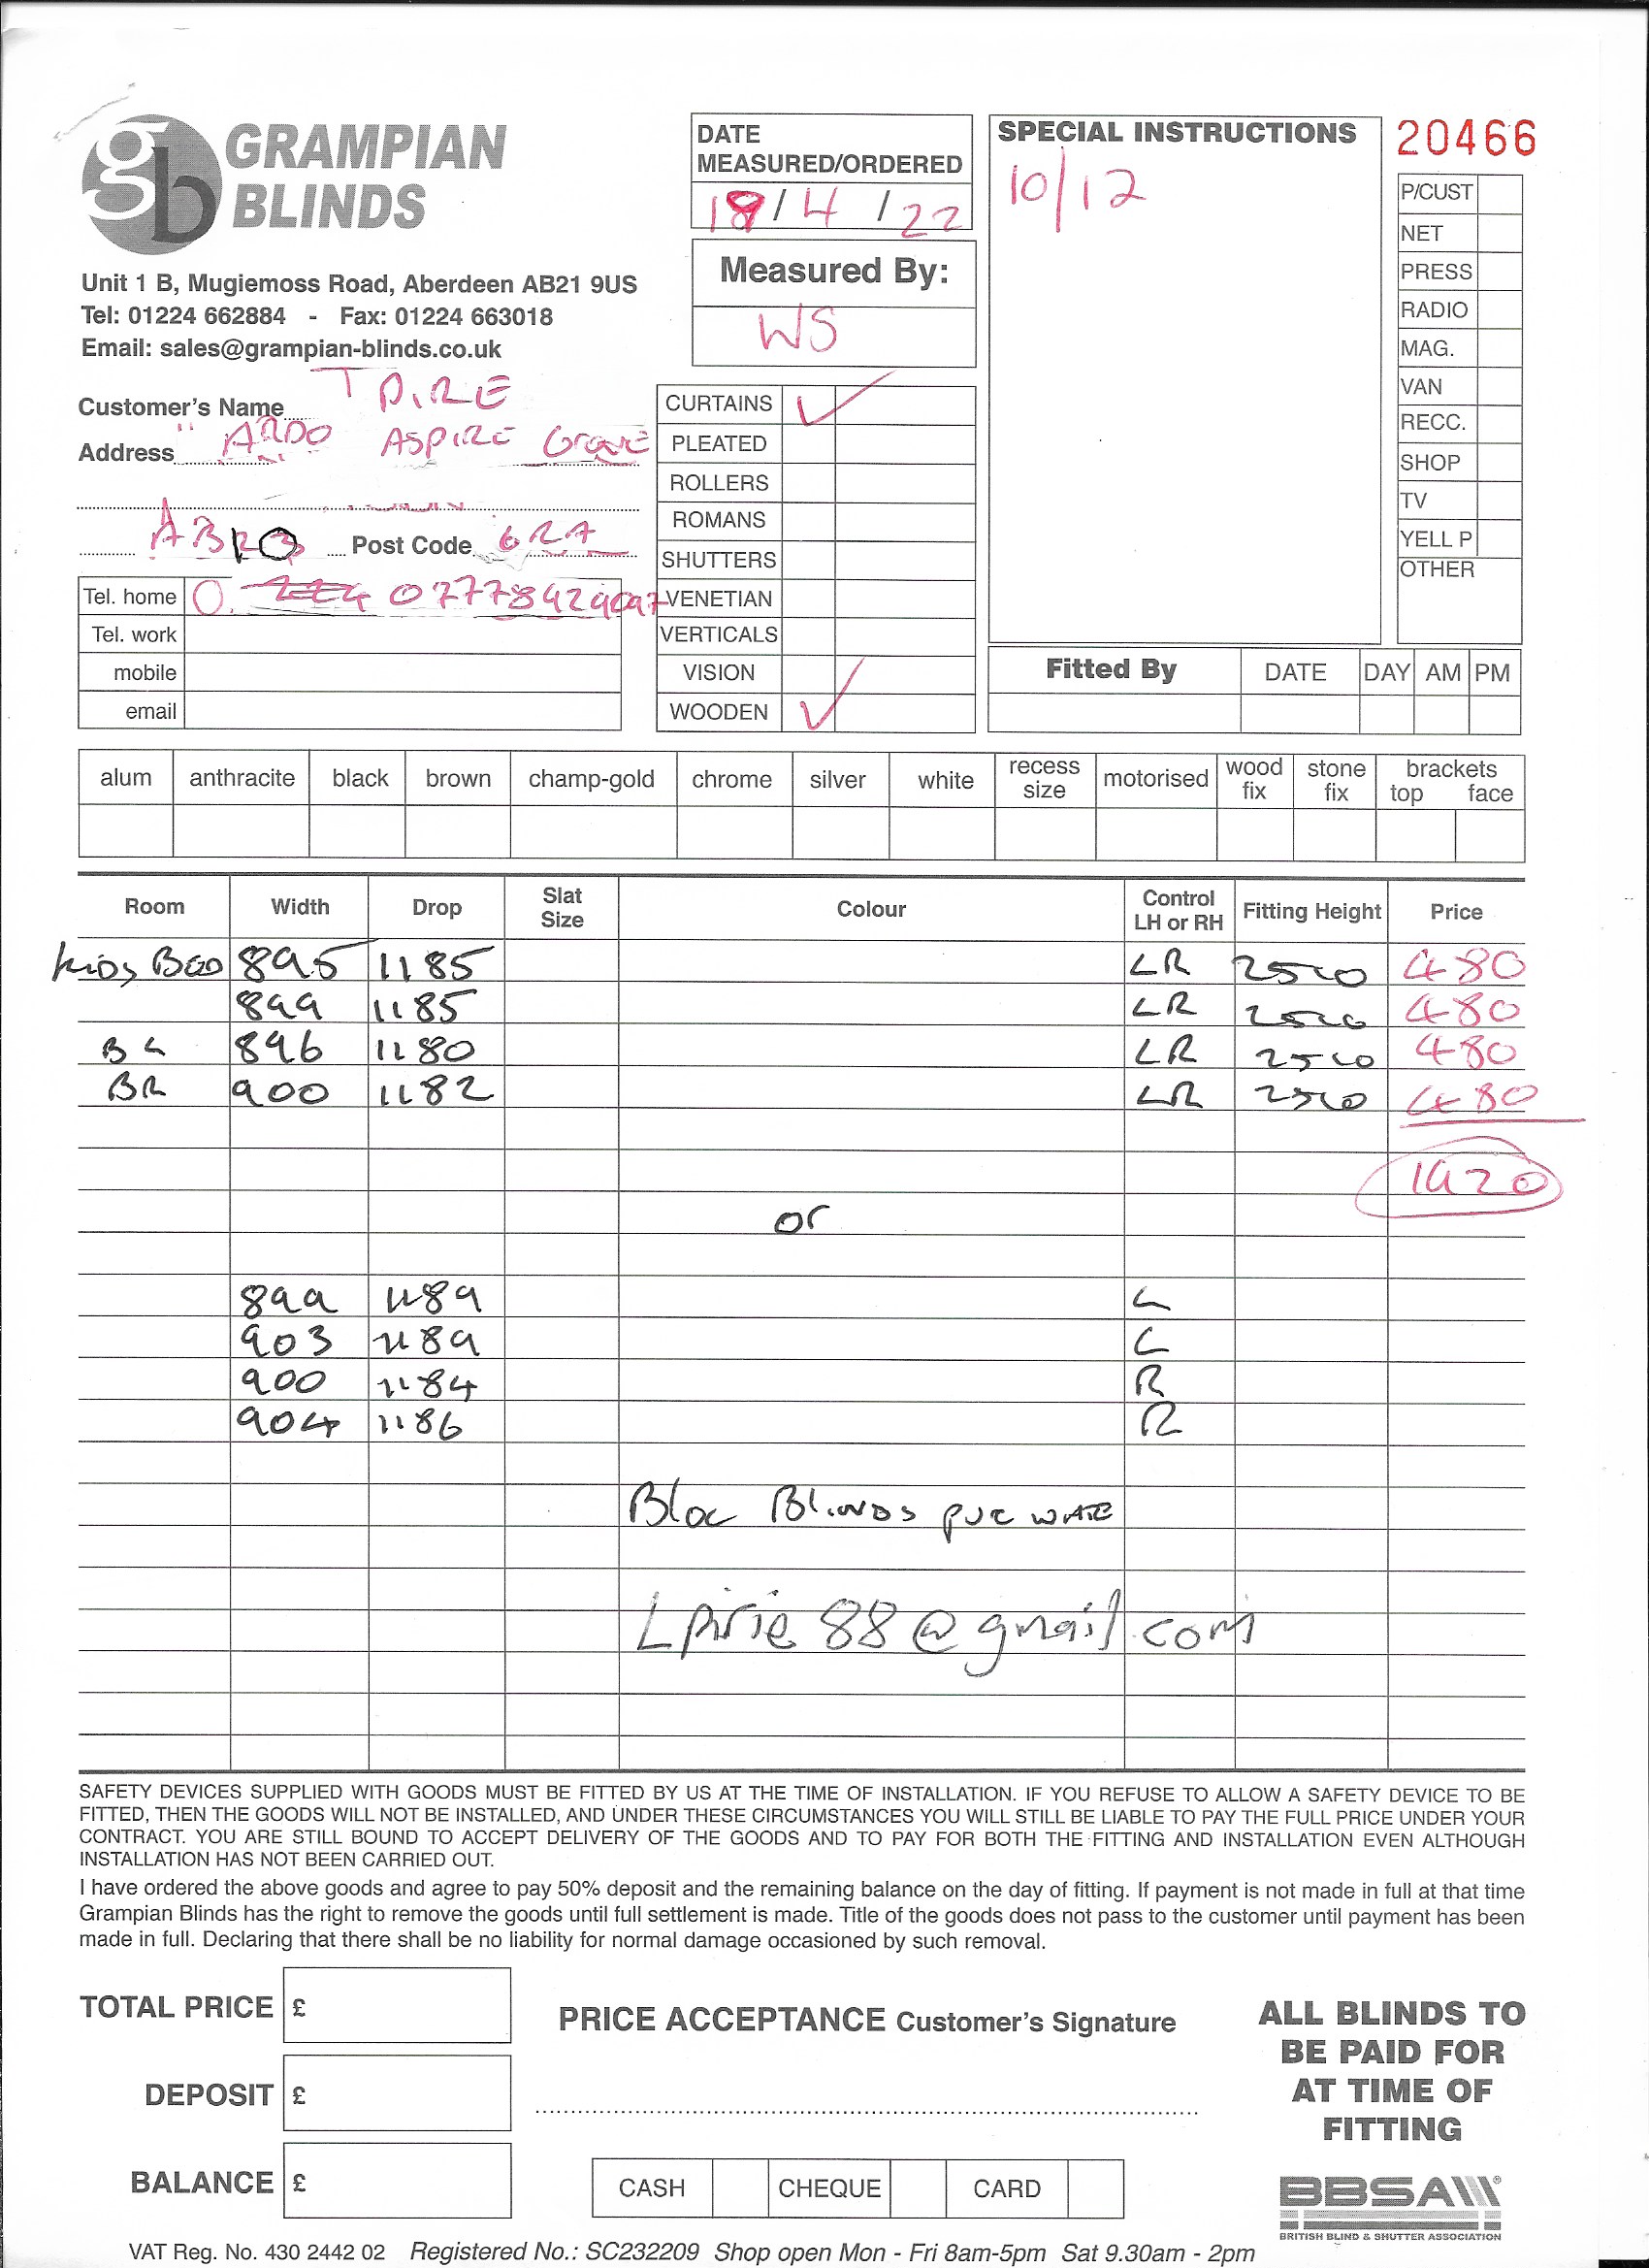 gb GRAMPIAN
BLINDS
Unit 1 B, Mugiemoss Road, Aberdeen AB21 9US
Tel: 01224 662884 - Fax: 01224 663018
Email: sales@grampian-blinds.co.uk
DATE
MEASURED/ORDERED
18/4/22
Measured By:
WS
SPECIAL INSTRUCTIONS
10/12
20466
P/CUST
NET
PRESS
RADIO
MAG.
VAN
RECC.
SHOP
TV
YELL P
OTHER
Customer's Name
Address ASPIRE
Post Code
Tel. home
Tel. work
mobile
email
CURTAINS ✓
PLEATED
ROLLERS
ROMANS
SHUTTERS
VENETIAN
VERTICALS
VISION
WOODEN ✓
Fitted By DATE DAY AM PM
alum anthracite black brown champ-gold chrome silver white recess size motorised wood fix stone fix brackets top face
Room Width Drop Slat Size Colour Control LH or RH Fitting Height Price
Kids Bed 895 1185 LR 2500 480
899 1185 LR 2500 480
BL 896 1180 LR 2500 480
BR 900 1182 LR 2500 480
1920
or
899 1189 L
903 1189 L
900 1184 R
904 1186 R
Bloc Blinds PVC
Lpirie88@gmail.com
SAFETY DEVICES SUPPLIED WITH GOODS MUST BE FITTED BY US AT THE TIME OF INSTALLATION. IF YOU REFUSE TO ALLOW A SAFETY DEVICE TO BE
FITTED, THEN THE GOODS WILL NOT BE INSTALLED, AND UNDER THESE CIRCUMSTANCES YOU WILL STILL BE LIABLE TO PAY THE FULL PRICE UNDER YOUR
CONTRACT. YOU ARE STILL BOUND TO ACCEPT DELIVERY OF THE GOODS AND TO PAY FOR BOTH THE FITTING AND INSTALLATION EVEN ALTHOUGH
INSTALLATION HAS NOT BEEN CARRIED OUT.
I have ordered the above goods and agree to pay 50% deposit and the remaining balance on the day of fitting. If payment is not made in full at that time
Grampian Blinds has the right to remove the goods until full settlement is made. Title of the goods does not pass to the customer until payment has been
made in full. Declaring that there shall be no liability for normal damage occasioned by such removal.
TOTAL PRICE £
DEPOSIT £
BALANCE £
PRICE ACCEPTANCE Customer's Signature
CASH CHEQUE CARD
ALL BLINDS TO
BE PAID FOR
AT TIME OF
FITTING
BBSA
BRITISH BLIND & SHUTTER ASSOCIATION
VAT Reg. No. 430 2442 02 Registered No.: SC232209 Shop open Mon - Fri 8am-5pm Sat 9.30am - 2pm